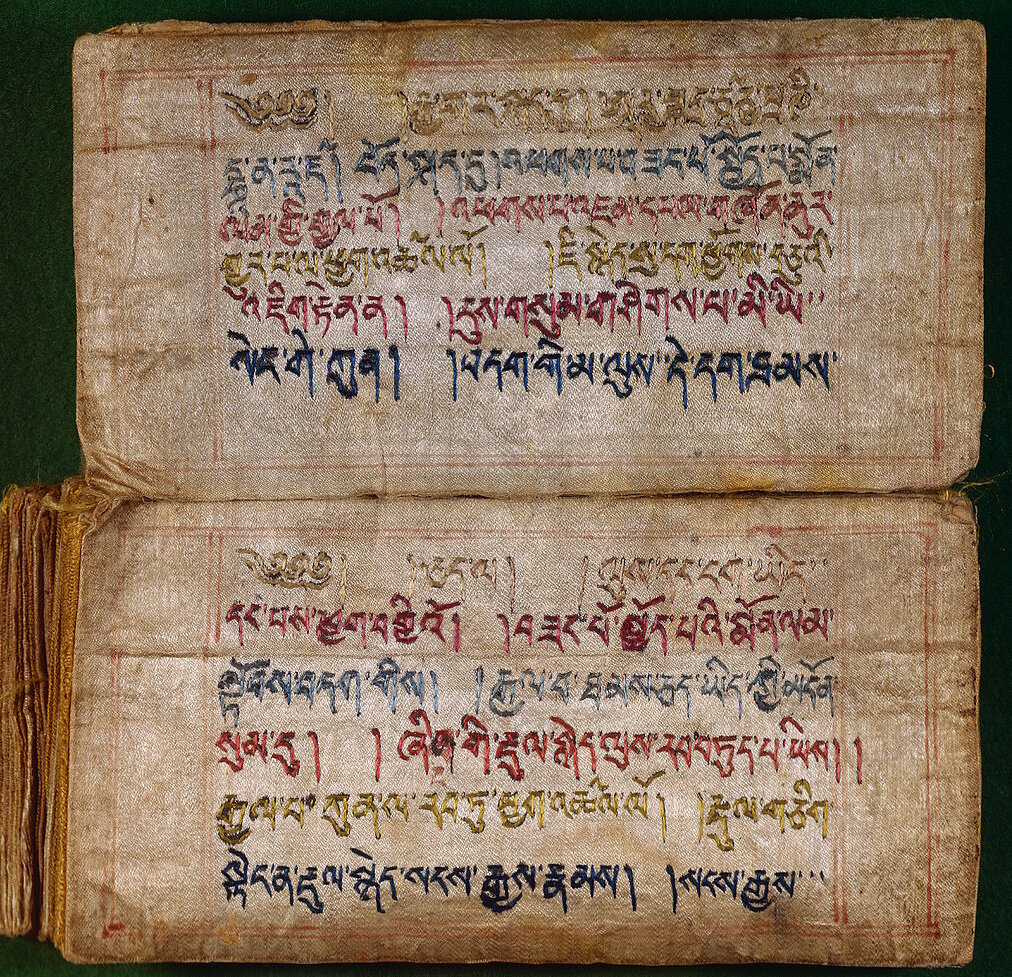 ༄༅༅། །རྒྱ་གར་སྐད་དུ།
བོད་སྐད་དུ།འཕགས་པ་བཟང་པོ་སྤྱོད་པ་སྨོན་
ལམ་གྱི་རྒྱལ་པོ། །འཕགས་པ་འཇམ་དཔལ་གཞོན་ནུར་
གྱུར་པ་ལ་ཕྱག་འཚལ་ལོ། །ཇི་སྙེད་སུ་དག་ཕྱོགས་བཅུའི་
འཇིག་རྟེན་ན། །དུས་གསུམ་གཤེགས་པ་མི་ཡི་
སེང་གེ་ཀུན། །བདག་གིས་མ་ལུས་དེ་དག་ཐམས་
༄༅༅། །ཅད་ལ། །ལུས་དང་ངག་ཡིད་
དང་བས་ཕྱག་བགྱིའོ། །བཟང་པོ་སྤྱོད་པའི་སྨོན་ལམ་
སྟོབས་བདག་གིས། །རྒྱལ་བ་ཐམས་ཅད་ཡིད་ཀྱི་མངོན་
སུམ་དུ། །ཞིང་གི་རྡུལ་སྙེད་ལུས་རབ་བཏུད་པ་ཡིས། །
རྒྱལ་བ་ཀུན་ལ་རབ་ཏུ་ཕྱག་འཚལ་ལོ། །རྡུལ་གཅིག་
སྟེང་ན་རྡུལ་སྙེད་སངས་རྒྱས་རྣམས། །སངས་རྒྱས་